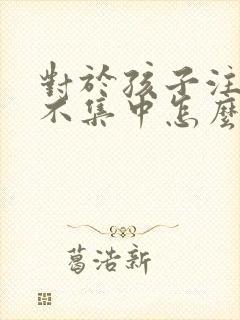 對於孩子注
不集中怎麼
葛浩新